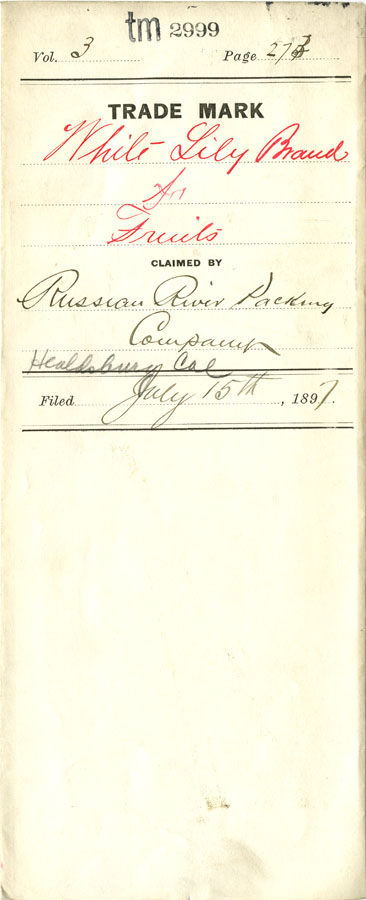 tm 2999
Vol. 3 Page
TRADE MARK
White Lily Brand
for
Fruits
CLAIMED BY
Russian River Packing
Company
Healdsburg Cal
Filed July 15th, 1897.